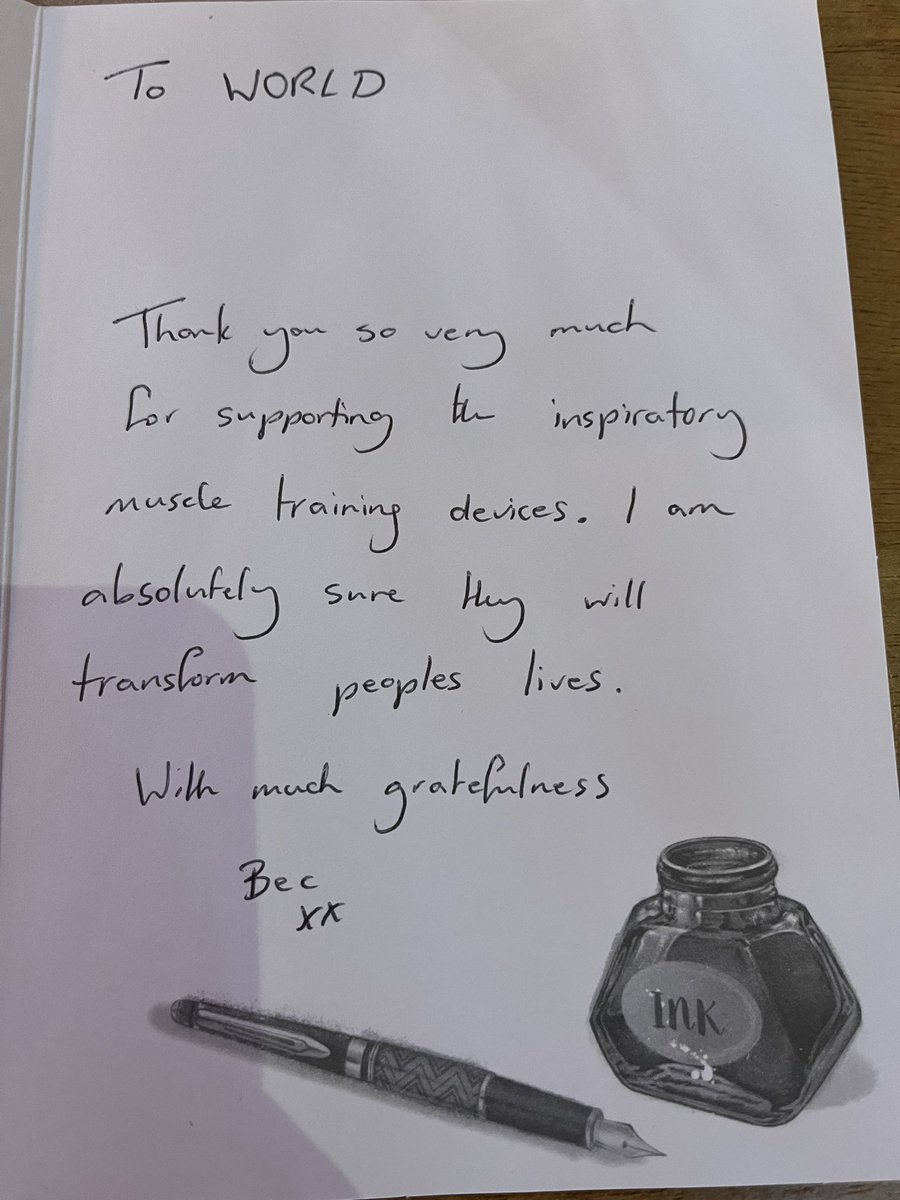 To WORLD
Thank you so very much
for supporting the inspiratory
muscle training devices. I am
absolutely sure they will
transform peoples lives.
With much gratefulness
Bec
xx
INK